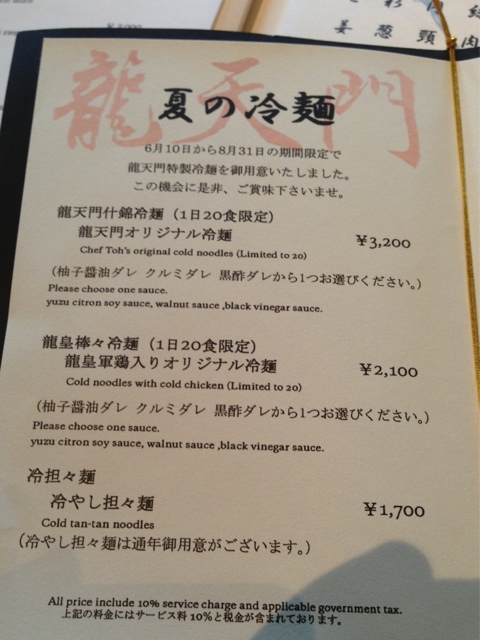 龍天門
夏の冷麺
6月10日から8月31日の期間限定で
龍天門特製冷麺を御用意いたしました。
この機会に是非、ご賞味下さいませ。
龍天門什錦冷麺（1日20食限定）
龍天門オリジナル冷麺
¥3,200
Chef Toh's original cold noodles (Limited to 20)
（柚子醤油ダレ クルミダレ 黒酢ダレから1つお選びください。）
Please choose one sauce.
yuzu citron soy sauce, walnut sauce ,black vinegar sauce.
龍皇棒々冷麺（1日20食限定）
龍皇軍鶏入りオリジナル冷麺
¥2,100
Cold noodles with cold chicken (Limited to 20)
（柚子醤油ダレ クルミダレ 黒酢ダレから1つお選びください。）
Please choose one sauce.
yuzu citron soy sauce, walnut sauce ,black vinegar sauce.
冷担々麺
冷やし担々麺
¥1,700
Cold tan-tan noodles
（冷やし担々麺は通年御用意がございます。）
All price include 10% service charge and applicable government tax.
上記の料金にはサービス料 10%と税金が含まれております。